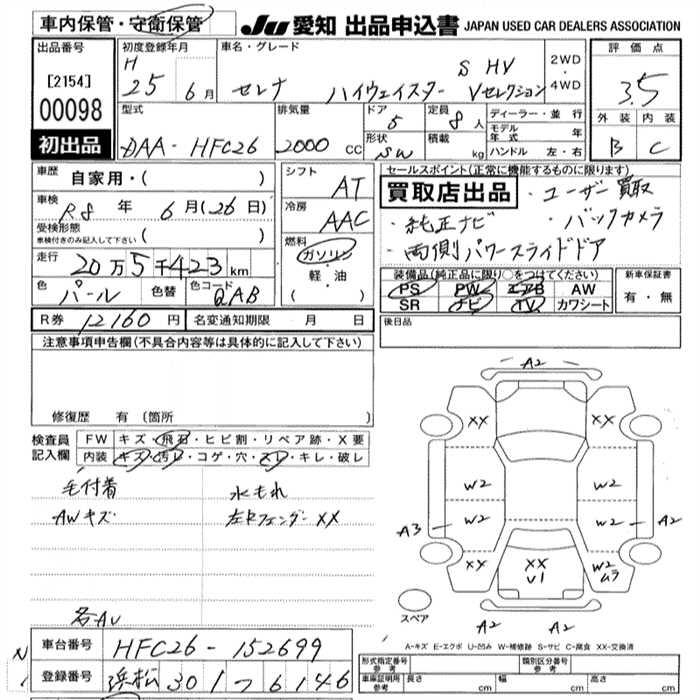 車内保管・守衛保管
JU 愛知 出品申込書 JAPAN USED CAR DEALERS ASSOCIATION
出品番号 [2154] 00098 初出品
初度登録年月 H 25年 6月
車名・グレード セレナ ハイウェイスター S HV Vセレクション
2WD・4WD
評価点 3.5
外装 内装
B C
型式 DAA-HFC26
排気量 2000 CC
ドア 5
形状 SW
定員 8人
積載 kg
ディーラー・並行
モデル年式 年
ハンドル 左・右
車歴 自家用・( )
シフト AT
車検 R8年 6月(26日)
冷房 AAC
受検形態 車検付きのみ記入して下さい ( )
走行 20万5千423km
燃料 ガソリン 軽・油 ( )
色 パール 色替 色コード QAB
R券 12160円 名変通知期限 月 日
セールスポイント(正常に機能するものに限ります)
買取店出品 ・ユーザー買取
・純正ナビ ・バックカメラ
・両側パワースライドドア
装備品(純正品に限り○をつけてください)
PS PW エアB AW
SR ナビ TV カワシート
新車保証書 有・無
後日品
注意事項申告欄(不具合内容等は具体的に記入して下さい)
修復歴 有(箇所 )
検査員記入欄
FW キズ・飛石・ヒビ割・リペア跡・X要
内装 キズ・汚レ・コゲ・穴・スレ・キレ・破レ
毛付着 水もれ
AWキズ 左右フェンダーXX
各AU
A2
XX XX
W2 W2
A3 W2 W2 A2
XX XX V1 W2 ムラ
スペア A2 A2
A-キズ E-エクボ U-凹み W-補修跡 S-サビ C-腐食 XX-交換済
車台番号 HFC26-152699
登録番号 浜松 301 つ 6146
形式指定番号 参考 類別区分番号 参考
車庫証明用 参考 長さ cm 幅 cm 高さ cm